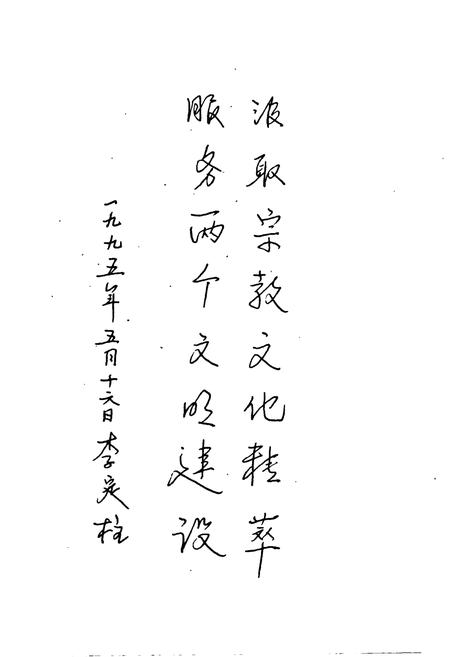 汲取宗教文化精萃
服务两个文明建设
一九九五年五月十六日李定柱